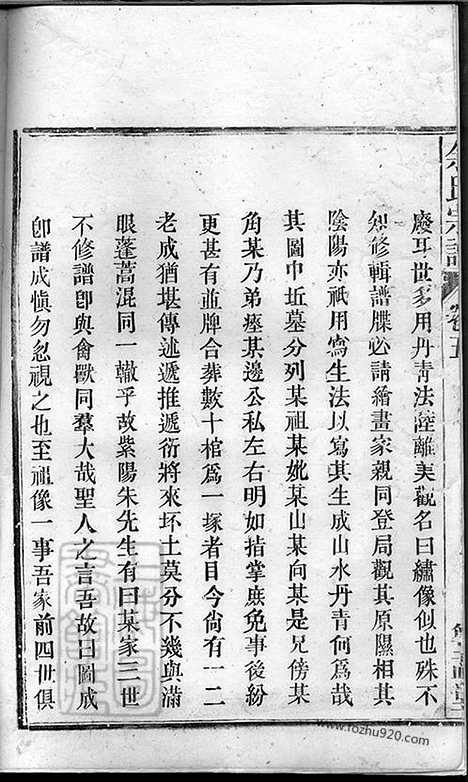 余氏宗譜
卷五
廢耳世多用丹青法陸離美觀名曰繡像似也殊不
知修輯譜牒必請繪畫家親同登局觀其原隰相其
陰陽亦祇用寫生法以寫其生成山水丹青何為哉
其圖中坵墓分列某祖某妣某山某向某是兄傍某
角某乃弟瘞某邊公私左右明如指掌庶免事後紛
更甚有並牌合葬數十棺為一塚者目今尙有一二
老成猶堪傳述遞推遞衍將來坏土莫分不幾與滿
眼蓬蒿混同一轍乎故紫陽朱先生有曰某家三世
不修譜卽與禽獸同羣大哉聖人之言吾故曰圖成
卽譜成愼勿忽視之也至祖像一事吾家前四世俱
www.fozhu920.com